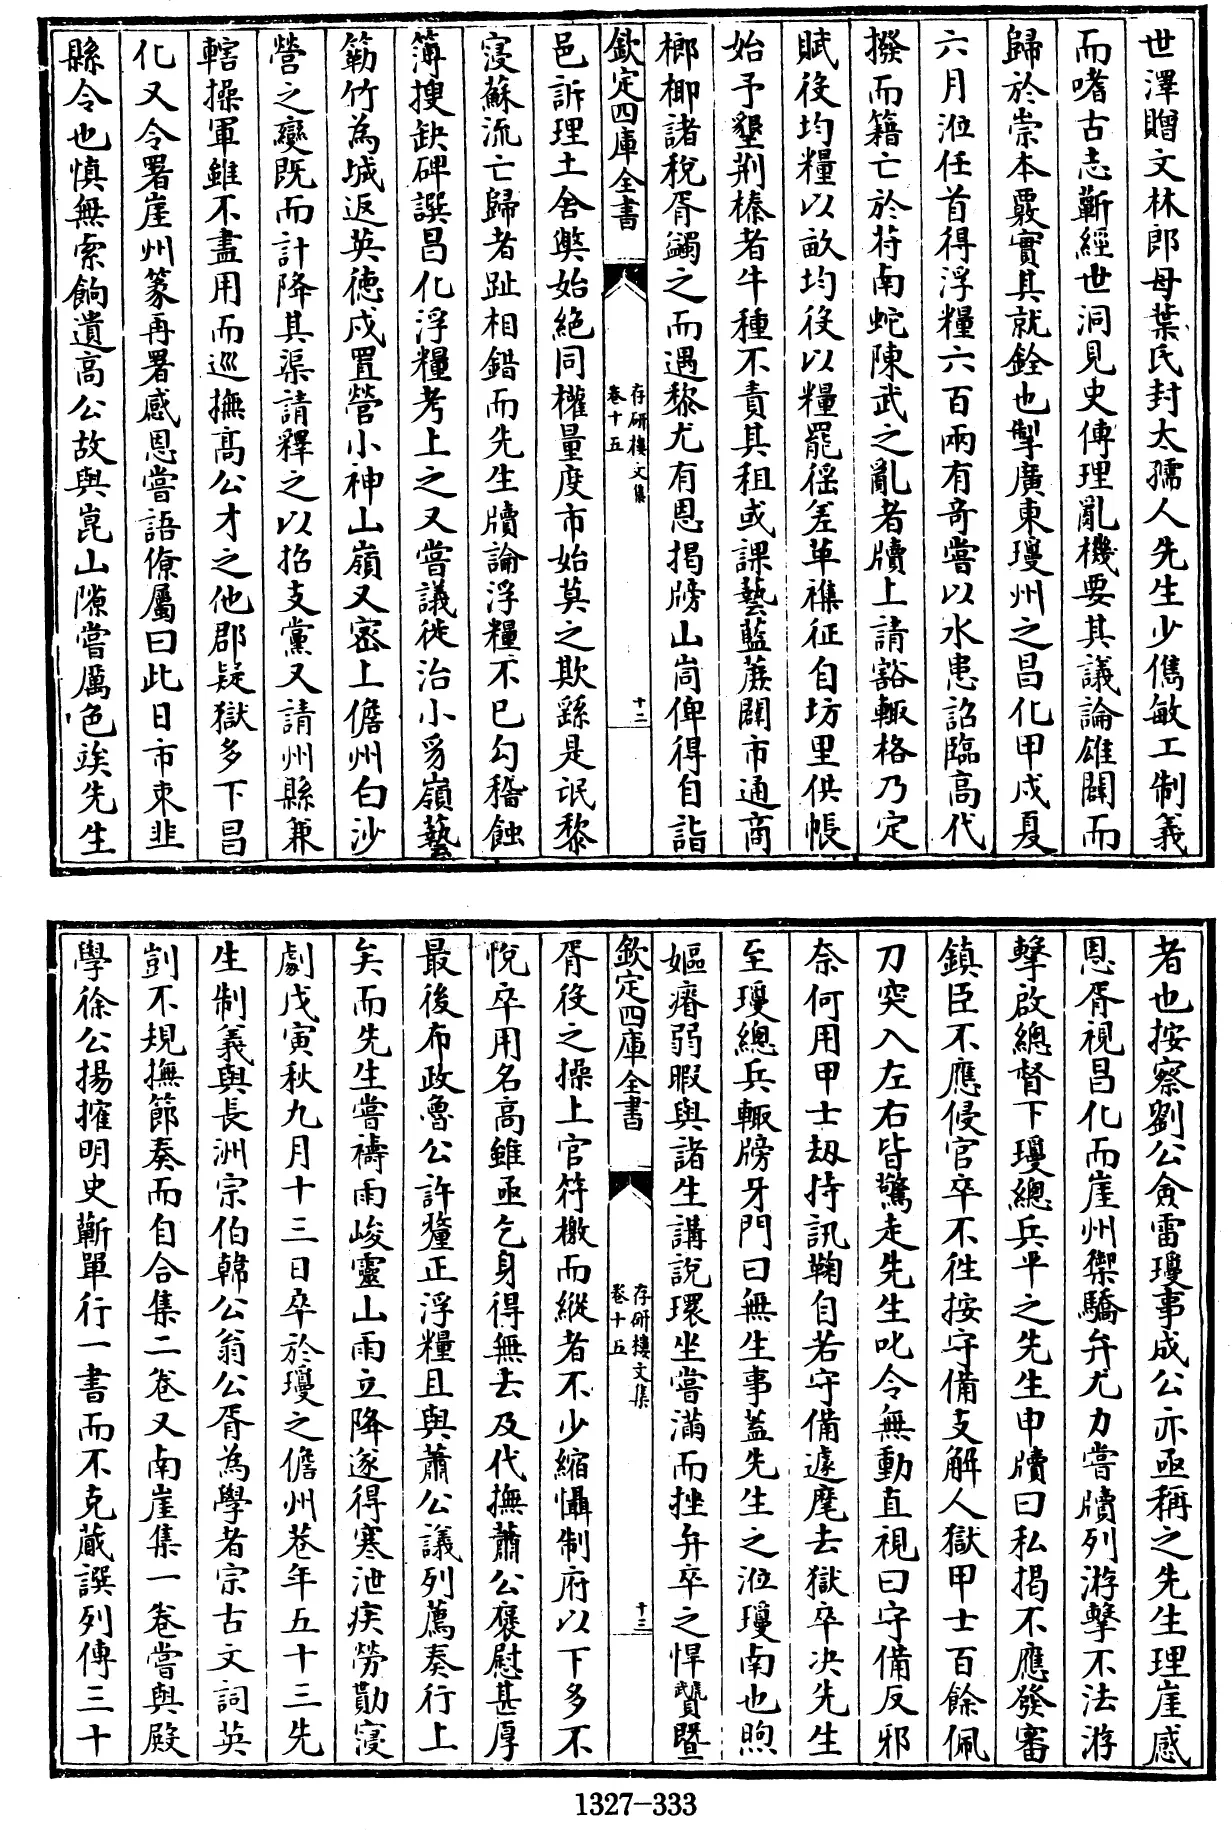 世澤贈文林郎母葉氏封太孺人先生少儁敏工制義
而嗜古志蘄經世洞見史傳理亂機要其議論雄闢而
歸於崇本覈實其就銓也掣廣東瓊州之昌化甲戌夏
六月涖任首得浮糧六百兩有奇嘗以水患詔臨高代
撥而籍亡於苻南蛇陳武之亂者牘上請豁輙格乃定
賦役均糧以畝均役以糧罷徭差革襍征自坊里供帳
始予墾荆榛者牛種不責其租或課藝藍蔗闢市通商
榔椰諸稅胥蠲之而遇黎尤有恩揭牓山峝俾得自詣
欽定四庫全書
存研樓文集
卷十五
十二
邑訴理土舍獘始絶同權量度市始莫之欺繇是氓黎
寖蘇流亡歸者趾相錯而先生牘論浮糧不已勾稽蝕
簿搜缺碑譔昌化浮糧考上之又嘗議徙治小豸嶺藝
簕竹為城返英徳戍置營小神山嶺又宻上儋州白沙
營之變既而計降其渠請釋之以招支黨又請州縣兼
轄操軍雖不盡用而巡撫髙公才之他郡疑獄多下昌
化又令署崖州篆再署感恩嘗語僚屬曰此日市朿韭
縣令也慎無索餉遺高公故與崑山隙嘗厲色竢先生
者也按察劉公僉雷瓊事成公亦亟稱之先生理崖感
恩胥視昌化而崖州禦驕弁尤力嘗牘列游擊不法游
擊啟總督下瓊總兵平之先生申牘曰私揭不應發審
鎮臣不應侵官卒不徃按守備支解人獄甲士百餘佩
刀突入左右皆驚走先生叱令無動直視曰守備反邪
奈何用甲士刼持訊鞠自若守備遽麾去獄卒决先生
至瓊總兵輙牓牙門曰無生事葢先生之涖瓊南也煦
嫗瘠弱暇與諸生講說環坐嘗滿而挫弁卒之悍贙暨
欽定四庫全書
存研樓文集
卷十五
十三
胥役之操上官符檄而縱者不少縮懾制府以下多不
悅卒用名高雖亟乞身得無去及代撫蕭公褒慰甚厚
最後布政魯公許釐正浮糧且與蕭公議列薦奏行上
矣而先生嘗禱雨峻靈山雨立降逐得寒泄疾勞勩寖
劇戊寅秋九月十三日卒於瓊之儋州菴年五十三先
生制義與長洲宗伯韓公翁公胥為學者宗古文詞英
剴不規撫節奏而自合集二卷又南崖集一卷嘗與殿
學徐公揚搉明史蘄單行一書而不克蕆譔列傳三十
1327-333